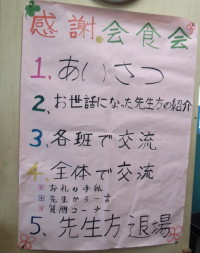 感謝.会食会
1.あいさつ
2.お世話になった先生方の紹介
3.各班で交流
4.全体で交流
お礼の手紙
先生から一言
質問コーナー
5.先生方退場